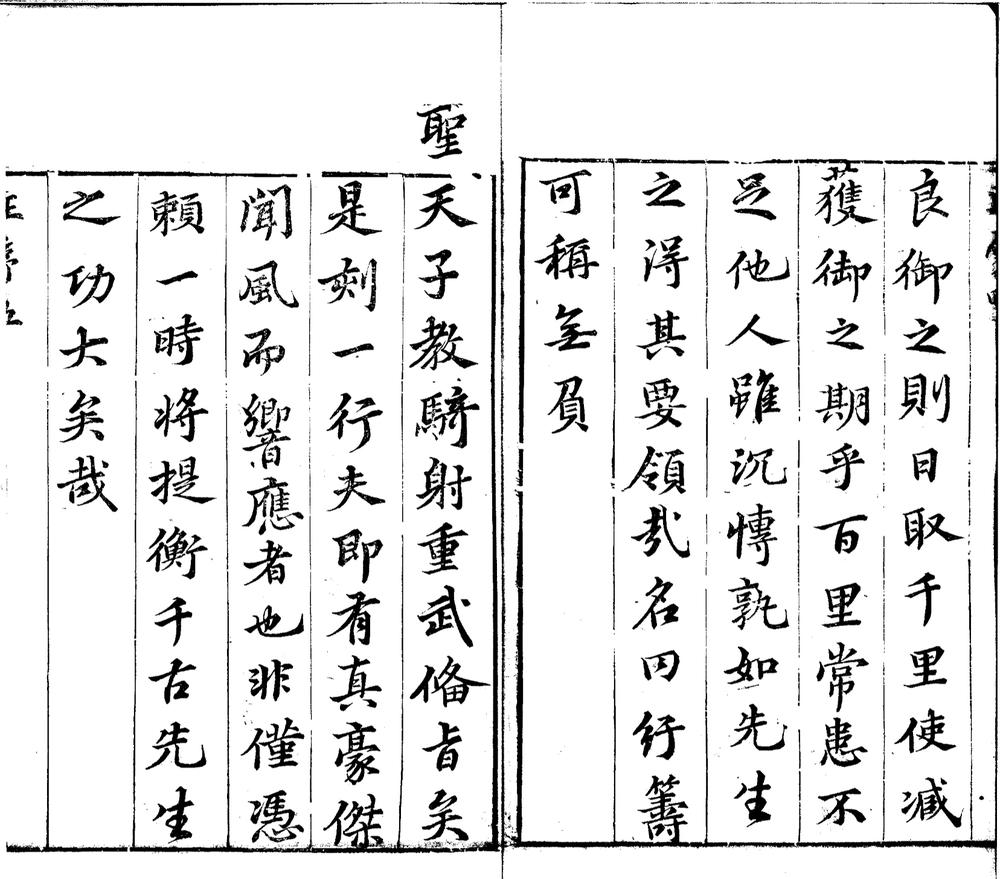 良御之則日取千里使减
獲御之期乎百里常患不
足他人雖沉慱孰如先生
之淂其要領哉名曰紆籌
可稱全員
聖天子教騎射重武偹㫖矣
是刻一行夫即有真豪傑
聞風而響應者也非僅憑
頼一時将提衡千古先生
之功大矣哉